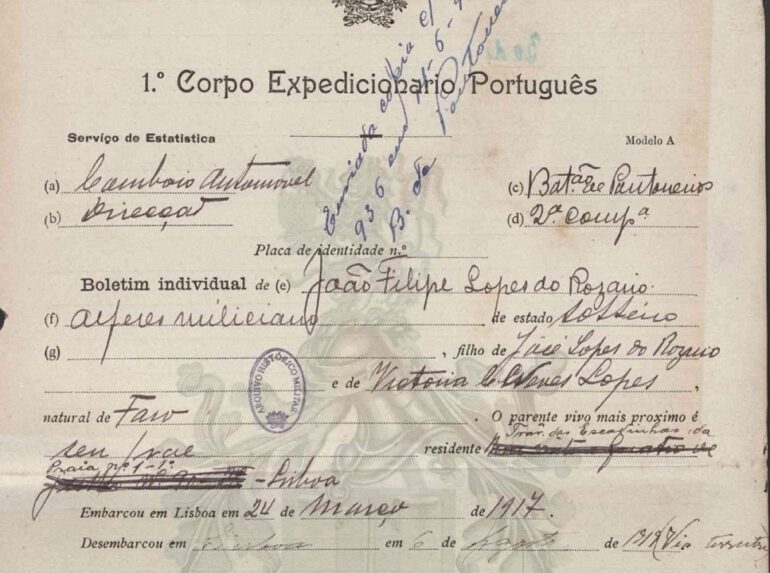 1.º Corpo Expedicionario Português
Enviada copia
936 em 11-6-
B. de Pontoneiros
Serviço de Estatistica
Modelo A
(a) Comboio Automovel
(c) Batão de Pontoneiros
(b) Direcção
(d) 2ª Compª
Placa de identidade n.º
Boletim individual de (e) João Filipe Lopes do Rozario
(f) Alferes miliciano de estado solteiro
(g) , filho de José Lopes do Rozario
ARQUIVO HISTÓRICO MILITAR
e de Victoria Neves Lopes,
natural de Faro. O parente vivo mais proximo é
seu residente Trav. das Escadinhas da
Praia nº 1-6º
-Lisboa
Embarcou em Lisboa em 24 de Março de 1917.
Desembarcou em Lisboa em 6 de Agosto de 1918 (Via terrestre